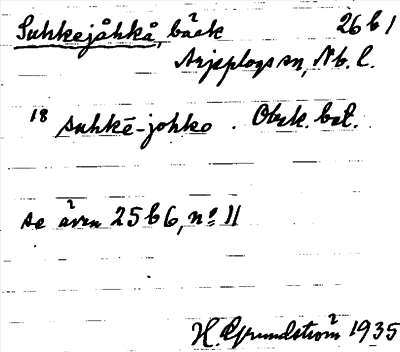 Suhkejåhkå, bäck 26 b 1
Arjeplogs sn, Nb. l.
18 suhkē-johko. Obek. bet.
se även 25 b 6, no 11
H. Grundström 1935